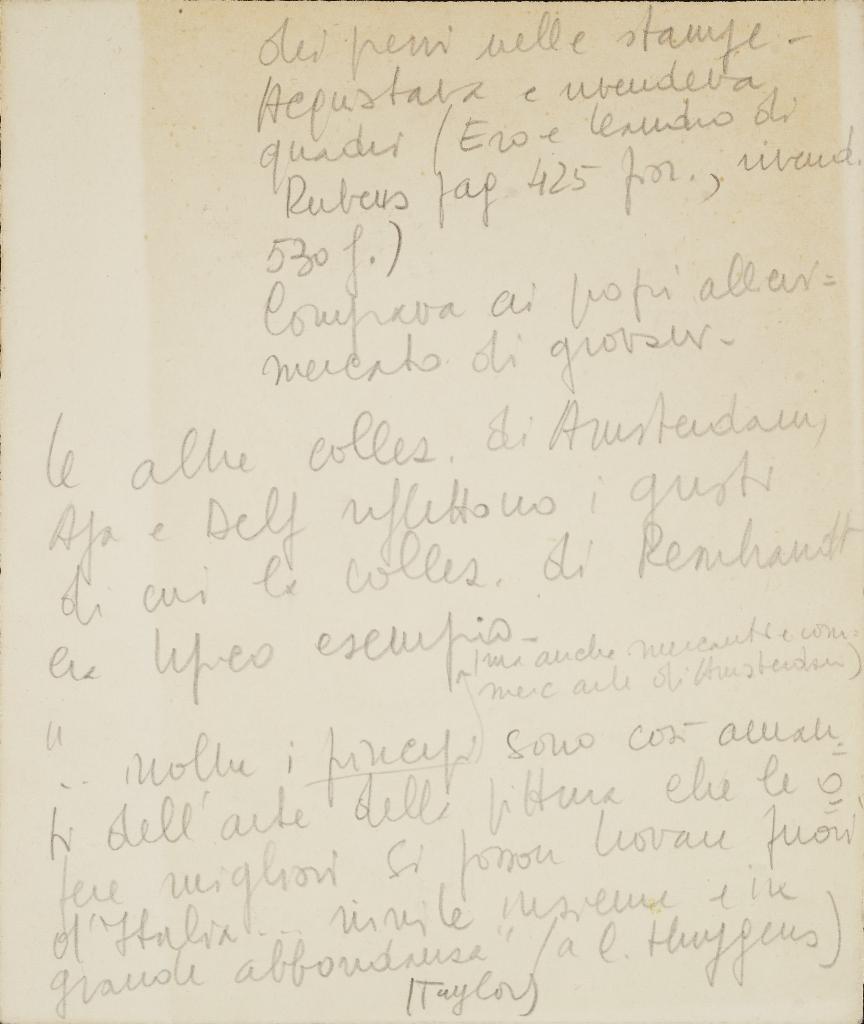 dei pezzi nelle stampe -
Acquistava e rivendeva
quadri (Ero e Leandro di
Rubens pag 425 fior., rivend.
530 f.)
Comprava ai popi all'
mercato di
le altre collez. di Amsterdam,
Aja e Delf riflettono i gusti
di cui la collez. di Rembrandt
era tipico esempio -
(ma anche mercanti e com=
merc arte di Amsterdam)
"... inoltre i principi sono così aman=
ti dell'arte della pittura che le o=
pere migliori si posson trovare fuori
d'Italia... riunite insieme e in
grande abbondanza" (a C. Huygens)
(Taylor)